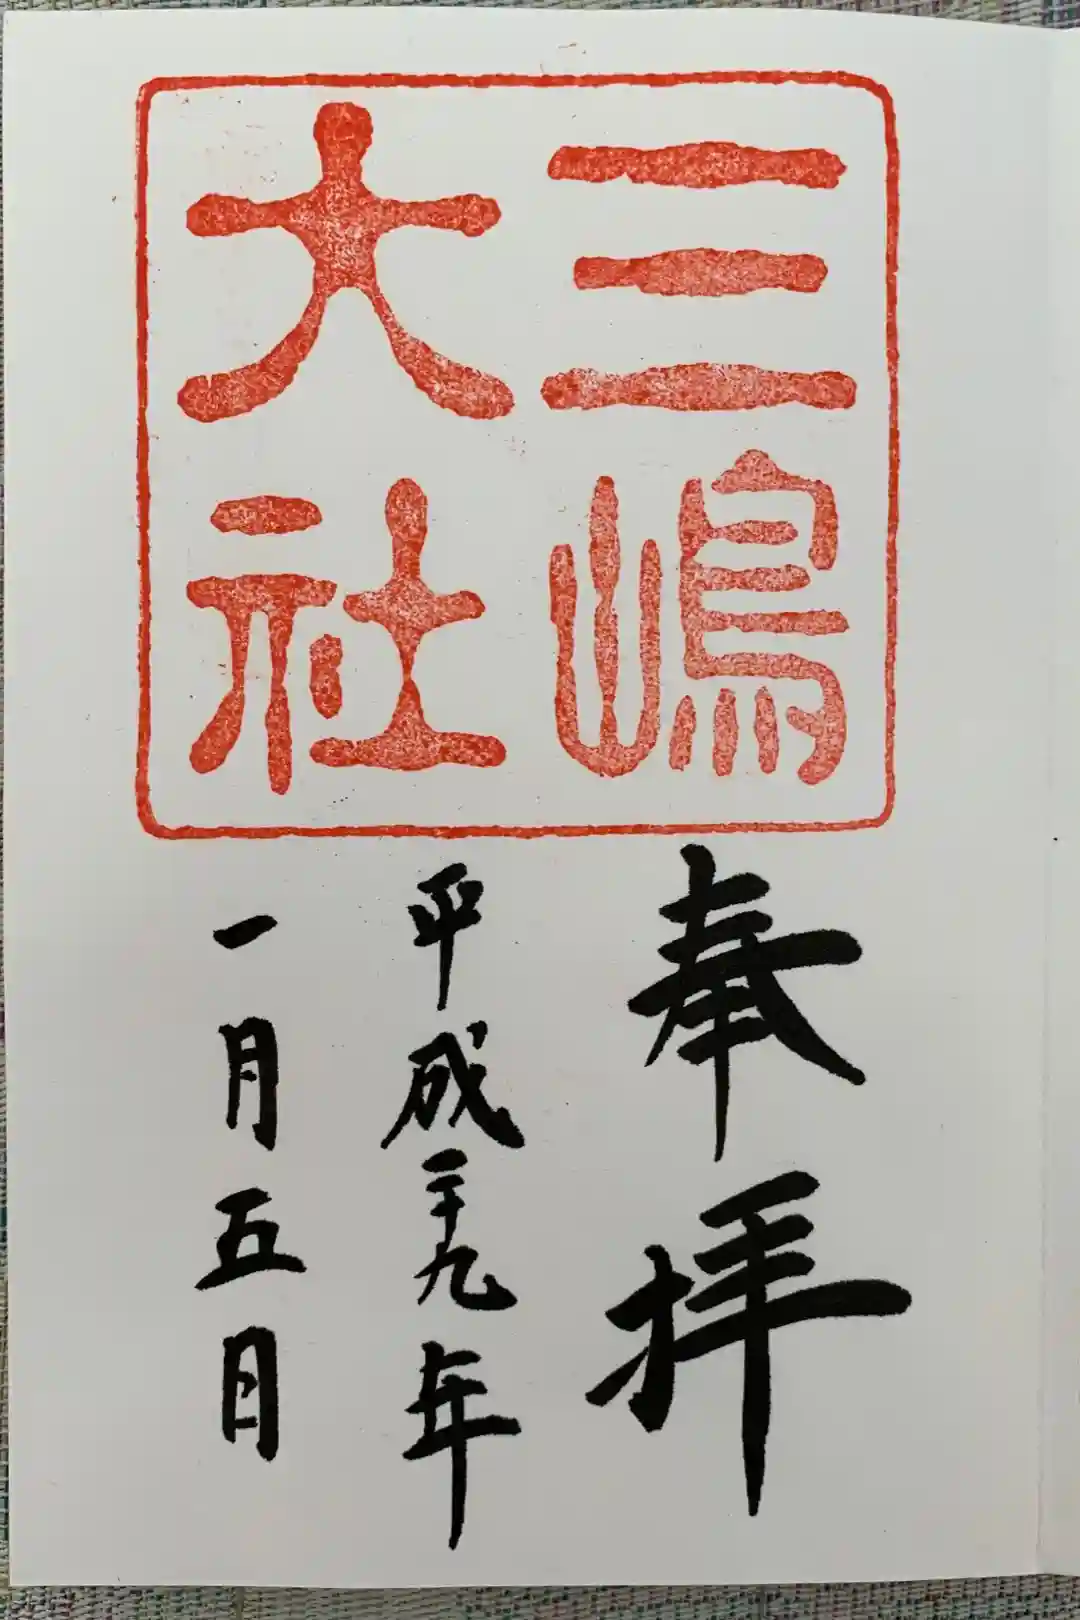 三嶋
大社
奉拝
平成二十九年
一月五日